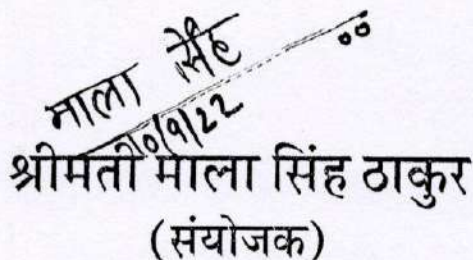 माला सिंह
10/9/22
श्रीमती माला सिंह ठाकुर
(संयोजक)